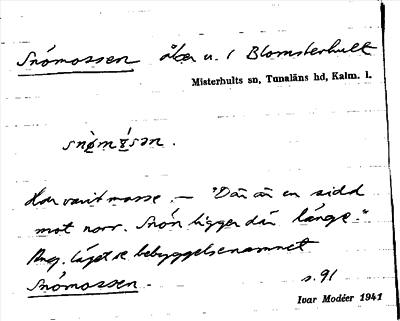 Snömossen åker u. / Blomsterhult
Misterhults sn, Tunaläns hd, Kalm. l.
snø̀mɔ̀sən.
Har varit mosse. – "Där är en sidd
mot norr. Snön ligger där länge."
Ang. läget se bebyggelsenamnet
Snömossen.
s. 91
Ivar Modéer 1941